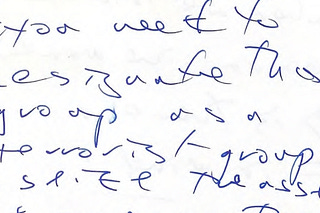 you need to
esignate this
group as a
terrorist group
seize the ass